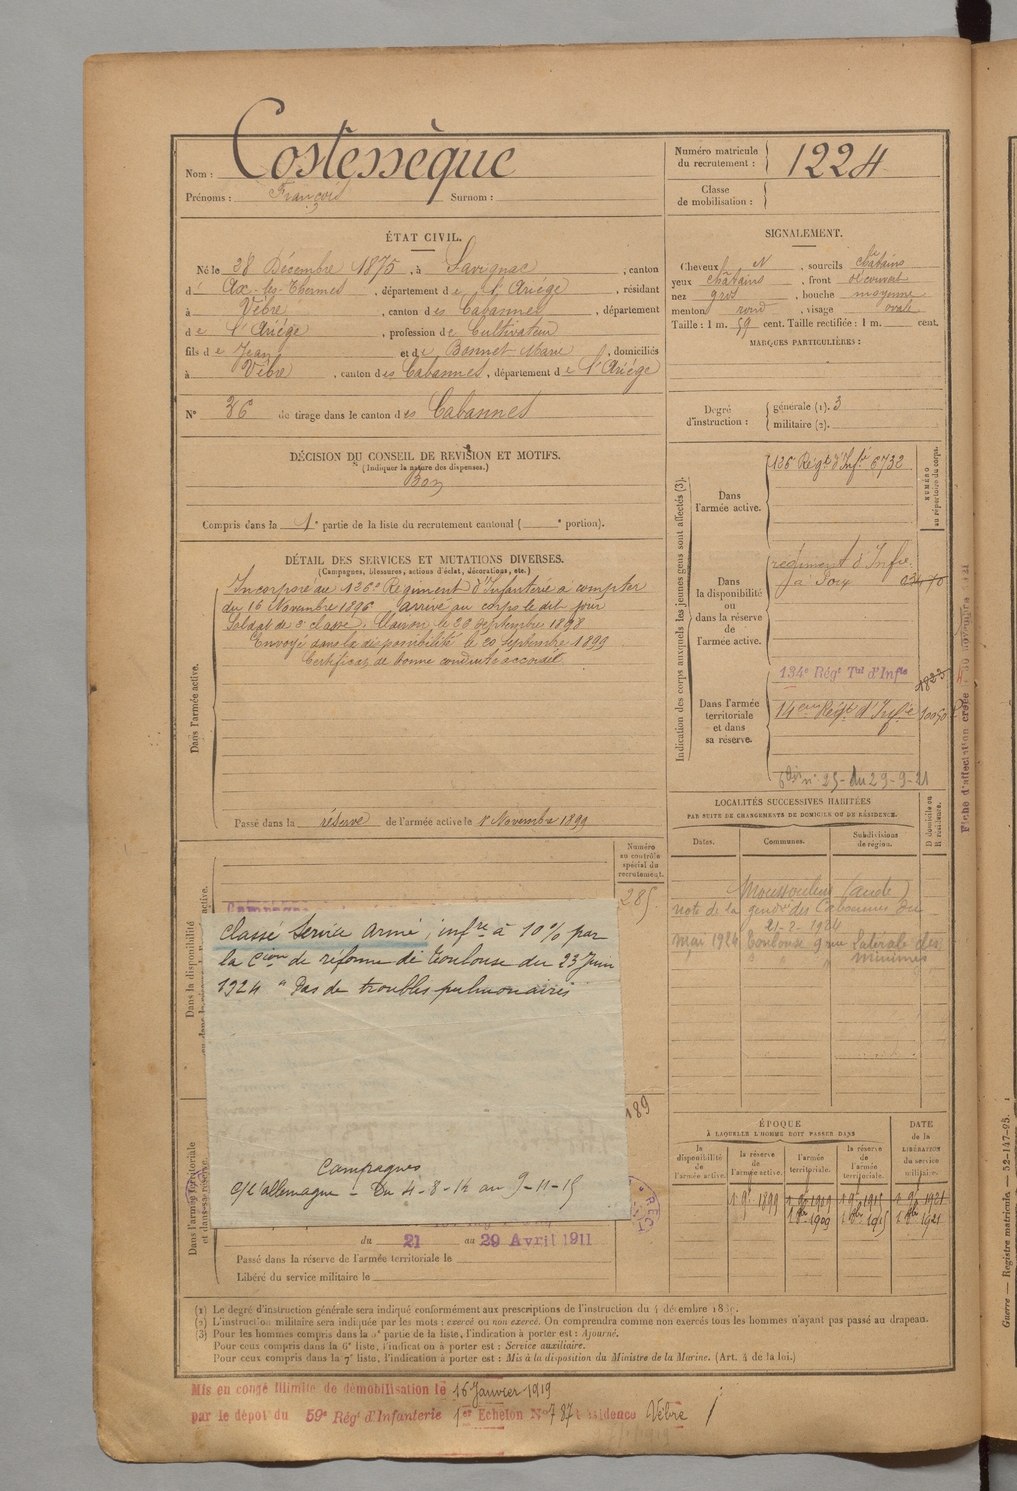 Nom : Costessèque
Prénoms : François Surnom :
Numéro matricule du recrutement : 1224
Classe de mobilisation :
ÉTAT CIVIL.
Né le 28 Décembre 1875, à Savignac, canton
d' Ax-les-Thermes, département de l'Ariège, résidant
à Vèbre, canton des Cabannes, département
de l'Ariège, profession de Cultivateur
fils de Jean et de Bonnet Marie, domiciliés
à Vèbre, canton des Cabannes, département de l'Ariège
N° 36 de tirage dans le canton des Cabannes
SIGNALEMENT.
Cheveux N, sourcils châtains
yeux châtains, front découvert
nez gros, bouche moyenne
menton rond, visage ovale
Taille : 1 m. 59 cent. Taille rectifiée : 1 m. cent.
MARQUES PARTICULIÈRES :
Degré d'instruction : générale (1). 3
militaire (2).
DÉCISION DU CONSEIL DE REVISION ET MOTIFS.
(Indiquer la nature des dispenses.)
Bon
Compris dans la 1e partie de la liste du recrutement cantonal ( e portion).
DÉTAIL DES SERVICES ET MUTATIONS DIVERSES.
(Campagnes, blessures, actions d'éclat, décorations, etc.)
Dans l'armée active.
Incorporé au 136e Régiment d'Infanterie à compter
du 16 Novembre 1896, arrivé au corps le dit jour
Soldat de 2e classe. Clairon le 26 Septembre 1898
Envoyé dans la disponibilité le 20 Septembre 1899
Certificat de bonne conduite accordé
Passé dans la réserve de l'armée active le 1er Novembre 1899
Indication des corps auxquels les jeunes gens sont affectés (3).
NUMÉRO au répertoire du corps.
Dans l'armée active.
136e Régt d'Infie 6732
Dans la disponibilité ou dans la réserve de l'armée active.
régiment d'Infie
à Foix
Dans l'armée territoriale et dans sa réserve.
134e Régt Tal d'Infie
14eme Régt d'Infie
n° 25 du 29-9-21
Fiche d'affectation créée
LOCALITÉS SUCCESSIVES HABITÉES
PAR SUITE DE CHANGEMENTS DE DOMICILE OU DE RÉSIDENCE.
D domicile ou R résidence.
Dates. Communes. Subdivisions de région.
Moussoulens (aude)
note de la gendie des Cabannes du
21-2-1924
mai 1924 Toulouse 9 rue Latérale des
minimes
Numéro au contrôle spécial du recrutement.
285.
Dans la disponibilité
classé Service Armé, infre à 10% par
la Cion de réforme de Toulouse du 23 Juin
1924 " Pas de troubles pulmonaires
Campagnes
C/ l'allemagne - Du 4-8-14 au 9-11-15
189
Dans l'armée territoriale et dans sa réserve.
du 21 au 29 Avril 1911
Passé dans la réserve de l'armée territoriale le
Libéré du service militaire le
ÉPOQUE
À LAQUELLE L'HOMME DOIT PASSER DANS
DATE de la LIBÉRATION du service militaire.
la disponibilité de l'armée active. la réserve de l'armée active. l'armée territoriale. la réserve de l'armée territoriale.
1 9e 1899 1 9e 1919 1 9e 1915 1 9e 1921
1 8bre 1909 1 8bre 1915 1 8bre 1921
(1) Le degré d'instruction générale sera indiqué conformément aux prescriptions de l'instruction du 4 décembre 1889.
(2) L'instruction militaire sera indiquée par les mots : exercé ou non exercé. On comprendra comme non exercés tous les hommes n'ayant pas passé au drapeau.
(3) Pour les hommes compris dans la 2e partie de la liste, l'indication à porter est : Ajourné.
Pour ceux compris dans la 6e liste, l'indication à porter est : Service auxiliaire.
Pour ceux compris dans la 7e liste, l'indication à porter est : Mis à la disposition du Ministre de la Marine. (Art. 4 de la loi.)
Mis en congé illimité de démobilisation le 16 Janvier 1919
par le dépôt du 59e Régt d'Infanterie 1er Echelon N° 787 Résidence Vèbre
Guerre — Registre matricule — 52-147-95.